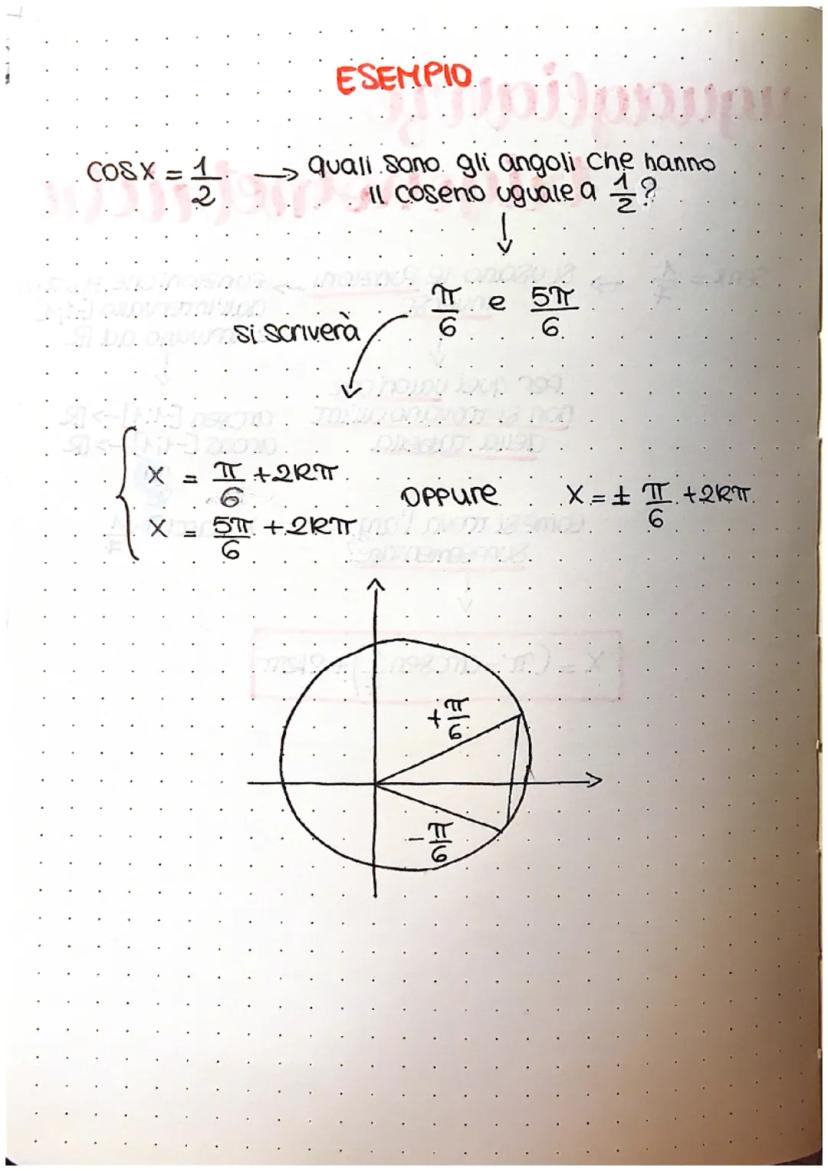 ESEMPIO
cosx = 1/2 → quali sono gli angoli che hanno
il coseno uguale a 1/2?
↓
π/6 e 5π/6
si scriverà
x = π/6 + 2kπ
oppure x = ± π/6 + 2kπ
x = 5π/6 + 2kπ
+π/6
-π/6